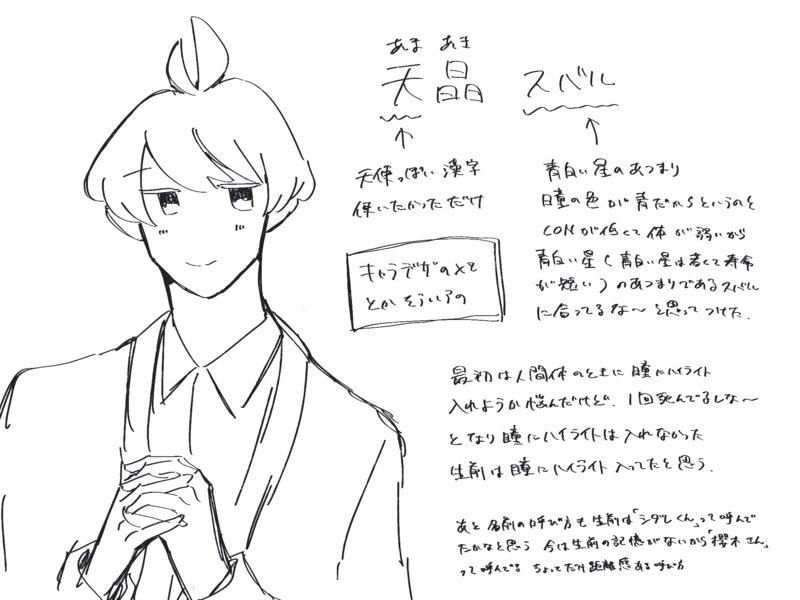 あま あき
天晶 スバル
天使っぽい漢字
使いたかっただけ
キャラデザのメモ
とか そういうの
青白い星のあつまり
瞳の色が青だからというのと
CONが低くて体が弱いから
青白い星(青白い星は若くて寿命
が短い)のあつまりであるスバル
に合ってるな〜と思ってつけた.
最初は人間体のときに瞳にハイライト
入れようか悩んだけど、1回死んでるしな〜
となり瞳にハイライトは入れなかった
生前は瞳にハイライト入ってたと思う.
あと名前の呼び方も生前は「シダレくん」って呼んで
たかなと思う 今は生前の記憶がないから「櫻木さん」
って呼んでる ちょってだけ距離感ある呼び方